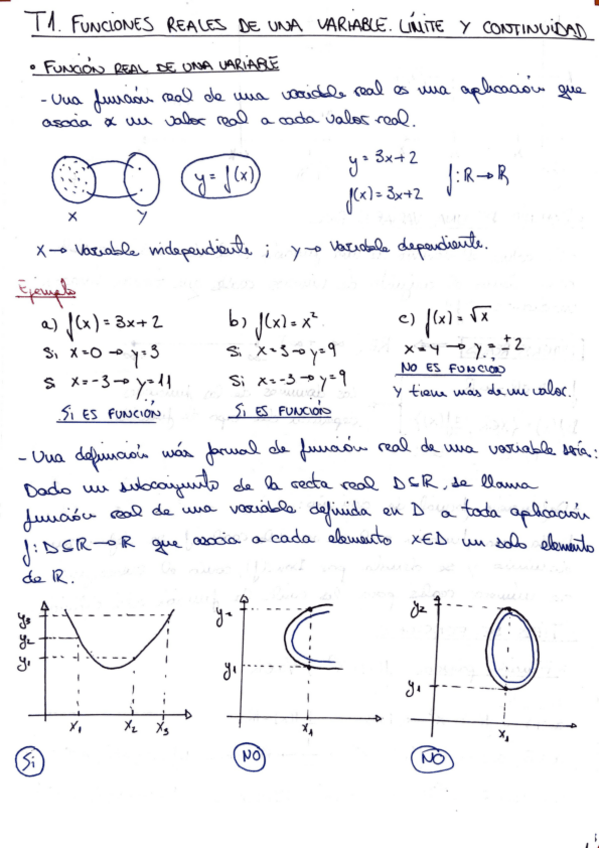 T1. FUNCIONES REALES DE UNA VARIABLE. LÍMITE Y CONTINUIDAD
• FUNCIÓN REAL DE UNA VARIABLE
- Una función real de una variable real es una aplicación que
asocia x un valor real a cada valor real.
y = f(x)
y = 3x+2
f(x) = 3x+2
f: R → R
x y
x → Variable independiente ; y → Variable dependiente.
Ejemplo
a) f(x) = 3x+2 b) f(x) = x² c) f(x) = √x
Si x=0 → y=3 Si x=3 → y=9 x=4 → y = ± 2
Si x=-3 → y=11 Si x=-3 → y=9 NO ES FUNCION
Si ES FUNCIÓN Si ES FUNCIÓN Y tiene más de un valor.
- Una definición más formal de función real de una variable sería:
Dado un subconjunto de la recta real D⊆R, se llama
función real de una variable definida en D a toda aplicación
f: D⊆R → R que asocia a cada elemento x∈D un solo elemento
de R.
y3
y2
y1
x1 x2 x3
Si
y2
y1
x1
NO
y2
y1
x1
NO